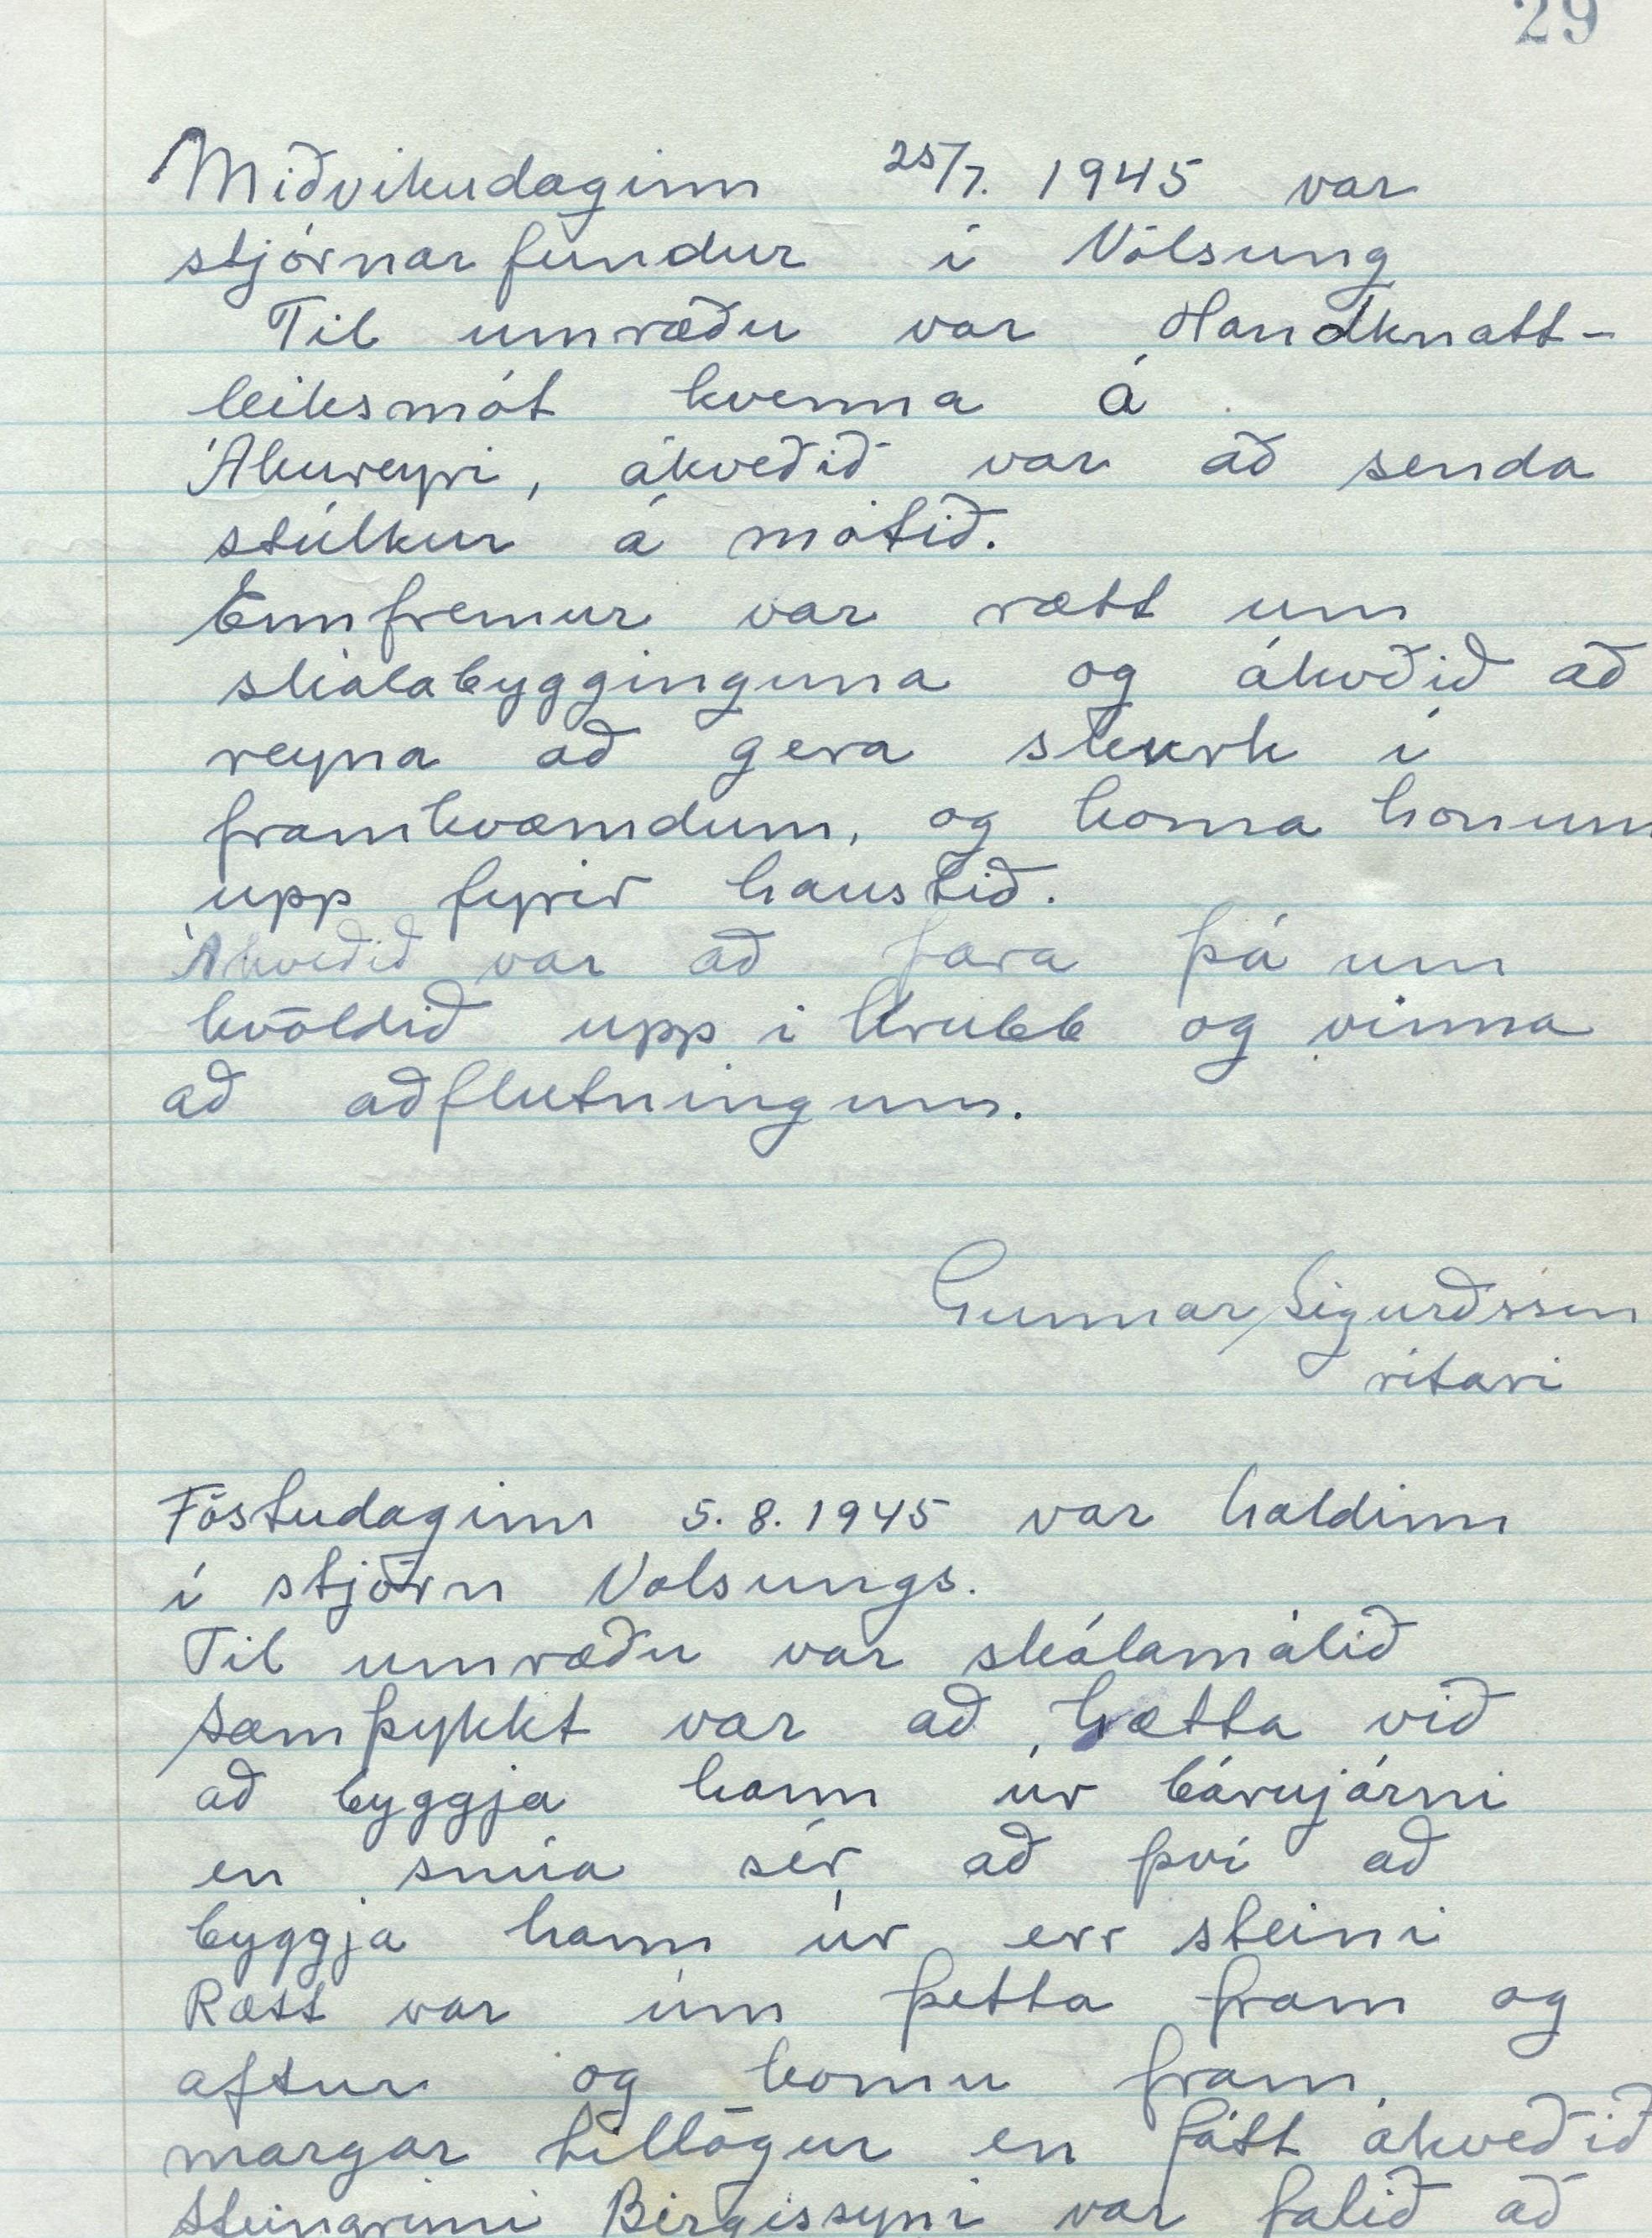 29
Miðvikudaginn 25/7. 1945 var
stjórnarfundur í Völsung
Til umræðu var Handknatt-
leiksmót kvenna á
Akureyri, ákveðið var að senda
stúlkur á mótið.
Ennfremur var rætt um
skálabygginguna og ákvðið að
reyna að gera skurk í
framkvæmdum, og koma honum
upp fyrir haustið.
Ákveðið var að fara þá um
kvöldið upp í Krubb og vinna
að aðflutningum.
Gunnar Sigurðsson
ritari
Föstudaginn 5.8.1945 var haldinn
í stjórn Völsungs.
Til umræðu var skálamálið
samþykkt var að hætta við
að byggja hann úr bárujárni
en snúa sér að því að
byggja hann úr err steini
Rætt var um þetta fram og
aftur og komu fram
margar tillögur en fátt ákveðið
Steingrími Birgissyni var falið að